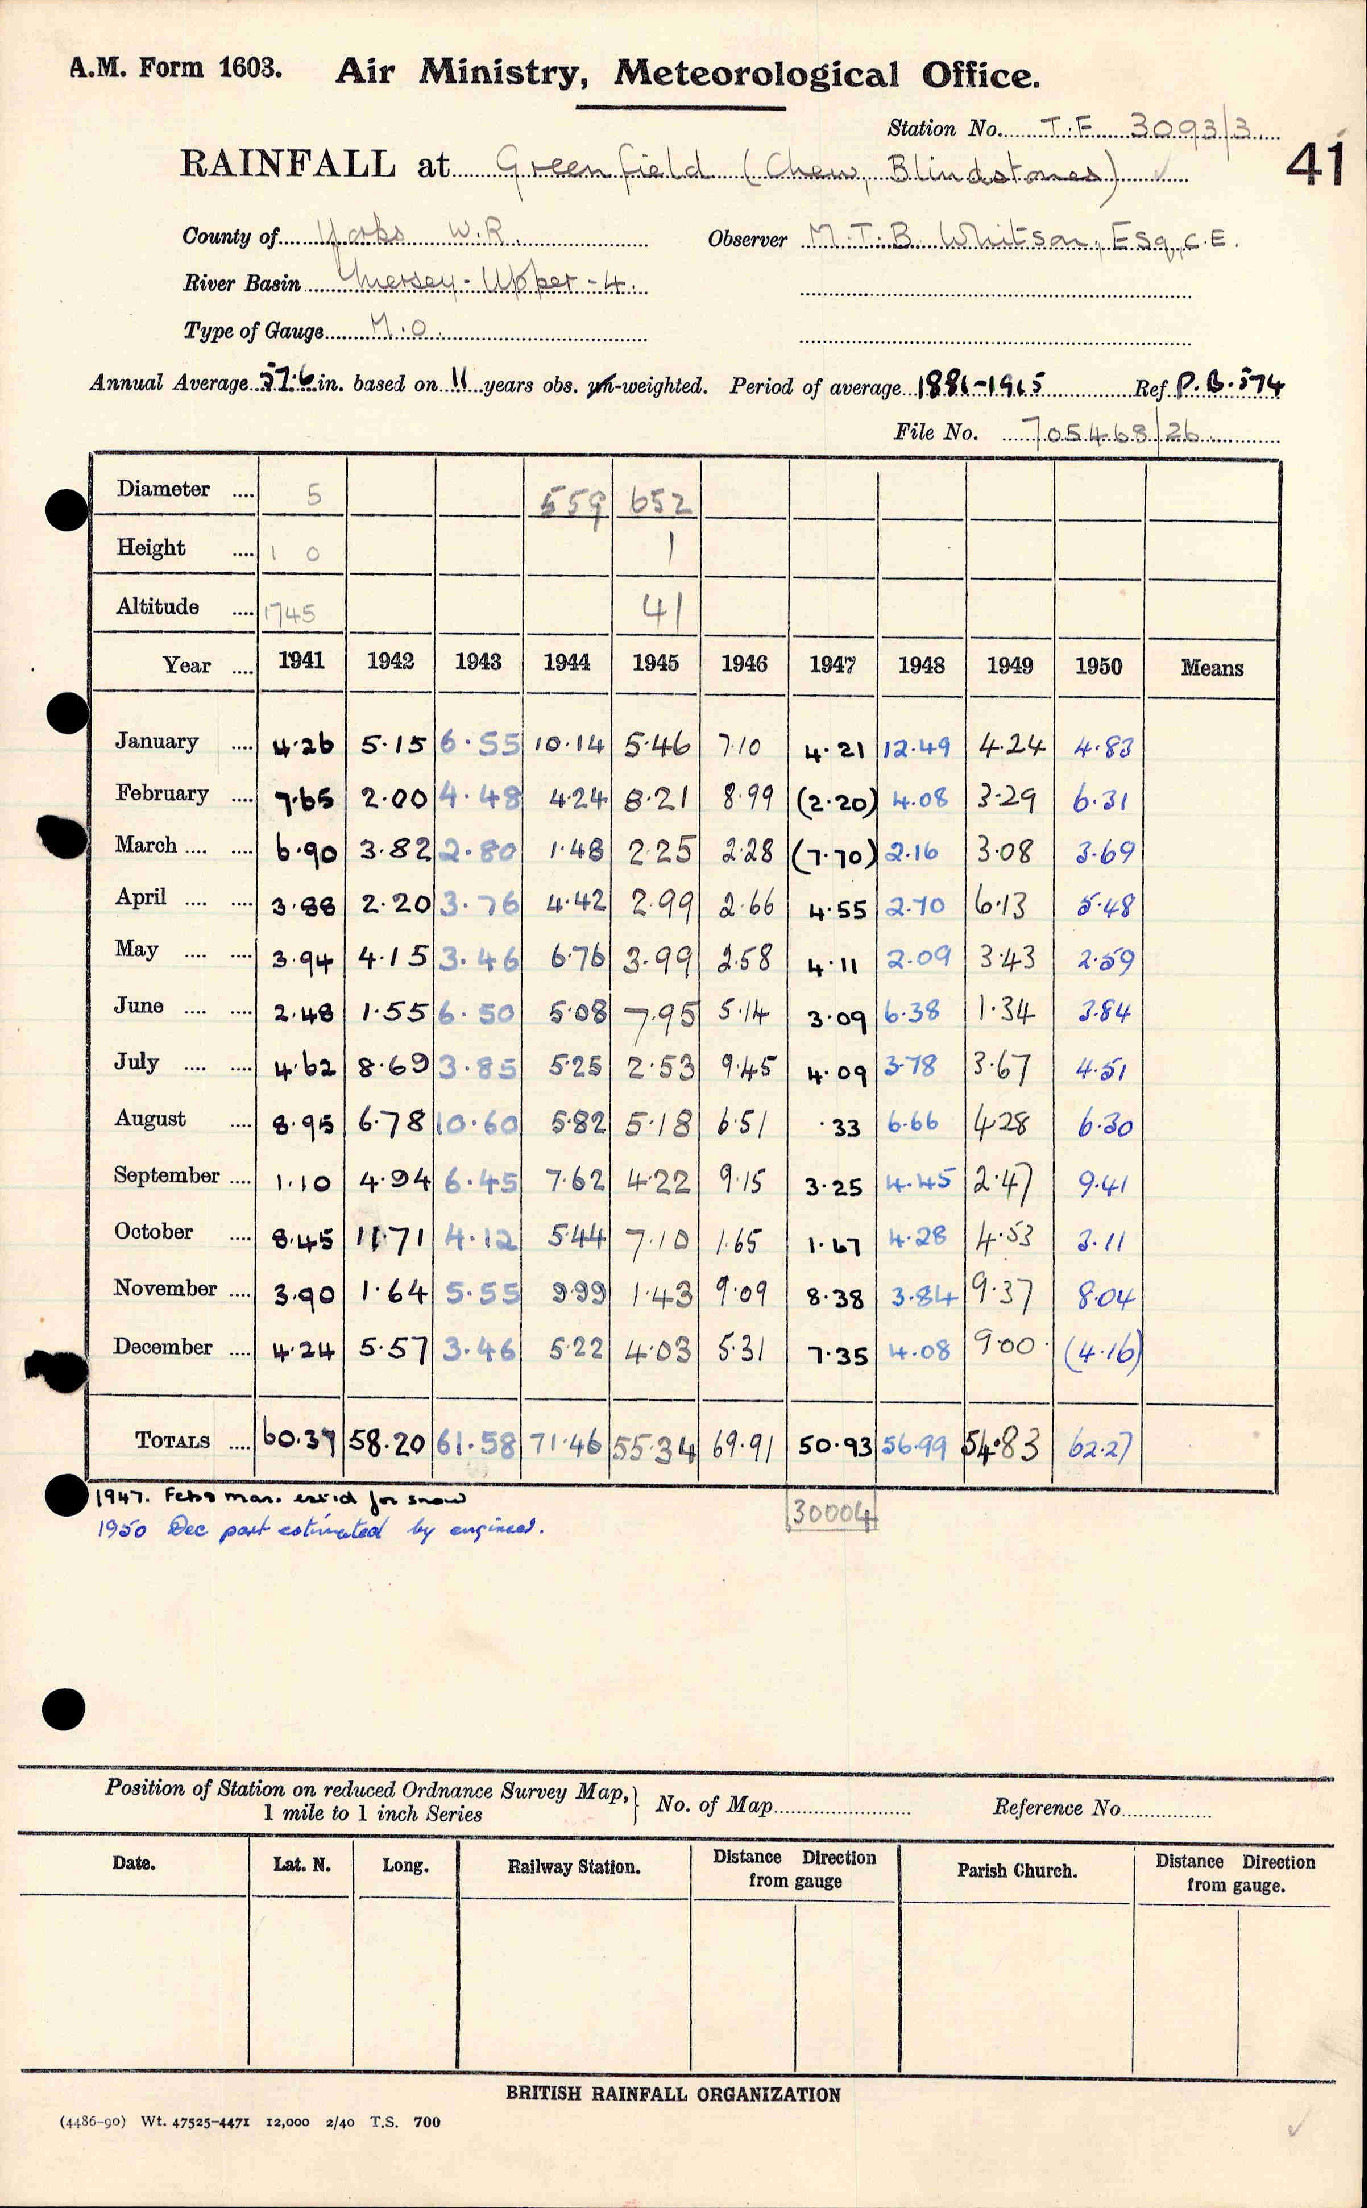 A.M. Form 1603. Air Ministry, Meteorological Office.
Station No. T.F 3093/3
RAINFALL at Greenfield (Chew, Blindstones) 41
County of Yorks W.R. Observer M.T.B. Whitson, Esq, C.E.
River Basin Mersey - Upper - 4.
Type of Gauge M.O.
Annual Average 57.6 in. based on 11 years obs. un-weighted. Period of average 1881-1915 Ref P.B. 574
File No. 705468/26
Diameter .... 5 559 652
Height .... 1 0 1
Altitude .... 1745 41
Year .... 1941 1942 1943 1944 1945 1946 1947 1948 1949 1950 Means
January .... 4.26 5.15 6.55 10.14 5.46 7.10 4.21 12.49 4.24 4.83
February .... 7.65 2.00 4.48 4.24 8.21 8.99 (2.20) 4.08 3.29 6.31
March .... .... 6.90 3.82 2.80 1.48 2.25 2.28 (7.70) 2.16 3.08 3.69
April .... .... 3.88 2.20 3.76 4.42 2.99 2.66 4.55 2.70 6.13 5.48
May .... .... 3.94 4.15 3.46 6.76 3.99 2.58 4.11 2.09 3.43 2.59
June .... .... 2.48 1.55 6.50 5.08 7.95 5.14 3.09 6.38 1.34 3.84
July .... .... 4.62 8.69 3.85 5.25 2.53 9.45 4.09 3.78 3.67 4.51
August .... 8.95 6.78 10.60 5.82 5.18 6.51 .33 6.66 4.28 6.30
September .... 1.10 4.94 6.45 7.62 4.22 9.15 3.25 4.45 2.47 9.41
October .... 8.45 11.71 4.12 5.44 7.10 1.65 1.67 4.28 4.53 3.11
November .... 3.90 1.64 5.55 9.99 1.43 9.09 8.38 3.84 9.37 8.04
December .... 4.24 5.57 3.46 5.22 4.03 5.31 7.35 4.08 9.00 (4.16)
TOTALS .... 60.37 58.20 61.58 71.46 55.34 69.91 50.93 56.99 54.83 62.27
1947. Feb & Mar. est'd for snow 30004
1950 Dec part estimated by engineer.
Position of Station on reduced Ordnance Survey Map, 1 mile to 1 inch Series } No. of Map Reference No
Date. Lat. N. Long. Railway Station. Distance Direction from gauge Parish Church. Distance Direction from gauge.
BRITISH RAINFALL ORGANIZATION
(4486-90) Wt. 47525-4471 12,000 2/40 T.S. 700